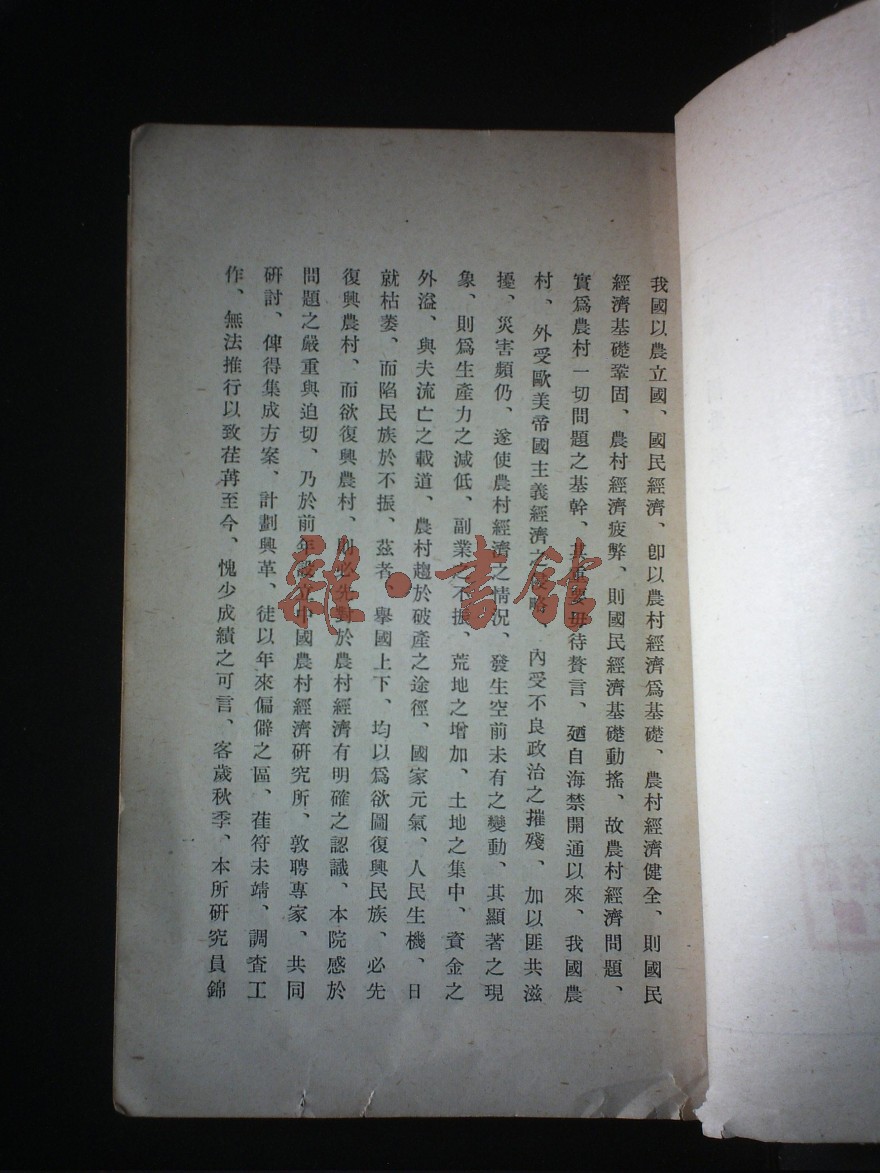 我國以農立國、國民經濟、卽以農村經濟爲基礎、農村經濟健全、則國民
經濟基礎鞏固、農村經濟疲弊、則國民經濟基礎動搖、故農村經濟問題、
實爲農村一切問題之基幹、其重要毋待贅言、廼自海禁開通以來、我國農
村、外受歐美帝國主義經濟之侵略、內受不良政治之摧殘、加以匪共滋
擾、災害頻仍、遂使農村經濟之情況、發生空前未有之變動、其顯著之現
象、則爲生產力之減低、副業之不振、荒地之增加、土地之集中、資金之
外溢、與夫流亡之載道、農村趨於破產之途徑、國家元氣、人民生機、日
就枯萎、而陷民族於不振、茲者、舉國上下、均以爲欲圖復興民族、必先
復興農村、而欲復興農村、則必先對於農村經濟有明確之認識、本院感於
問題之嚴重與迫切、乃於前年設立中國農村經濟研究所、敦聘專家、共同
研討、俾得集成方案、計劃興革、徒以年來偏僻之區、萑苻未靖、調查工
作、無法推行以致荏苒至今、愧少成績之可言、客歲秋季、本所研究員錦
雜·書館